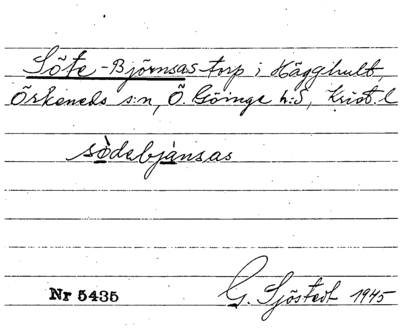 Söte-Björnsas torp i Hägghult,
Örkeneds s:n, Ö. Göinge h:d, Krist. l
sòdebjànsas
Nr 5435 G. Sjöstedt 1945